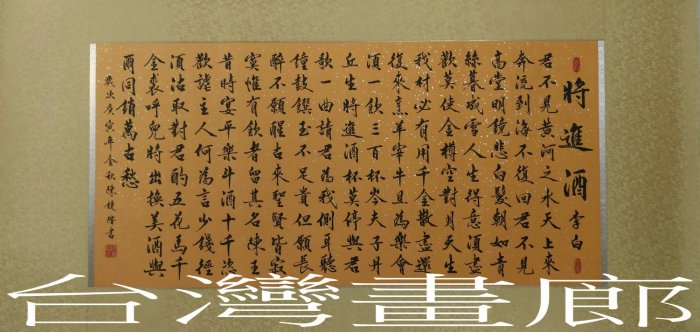 將進酒 李白
君不見黃河之水天上來
奔流到海不復回君不見
高堂明鏡悲白髮朝如青
絲暮成雪人生得意須盡
歡莫使金樽空對月天生
我材必有用千金散盡還
復來烹羊宰牛且為樂會
須一飲三百杯岑夫子丹
丘生將進酒杯莫停與君
歌一曲請君為我側耳聽
鐘鼓饌玉不足貴但願長
醉不願醒古來聖賢皆寂
寞惟有飲者留其名陳王
昔時宴平樂斗酒十千恣
歡謔主人何為言少錢徑
須沽取對君酌五花馬千
金裘呼兒將出換美酒與
爾同銷萬古愁
歲次庚寅年金秋陳書
台灣畫廊